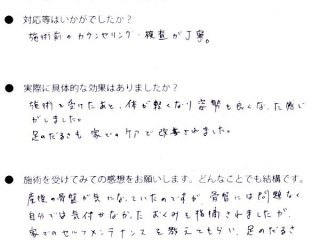 ● 対応等はいかがでしたか？
施術前のカウンセリング・検査が丁寧。
● 実際に具体的な効果はありましたか？
施術を受けたあと、体が軽くなり姿勢も良くなった感じ
がしました。
足のだるさも家でのケアで改善されました。
● 施術を受けてみての感想をお願いします。どんなことでも結構です。
産後の骨盤が気になっていたのですが、骨盤には問題なく
自分では気付かなかったむくみを指摘されましたが、
家でのセルフメンテナンスを教えてもらい、足のだるさ